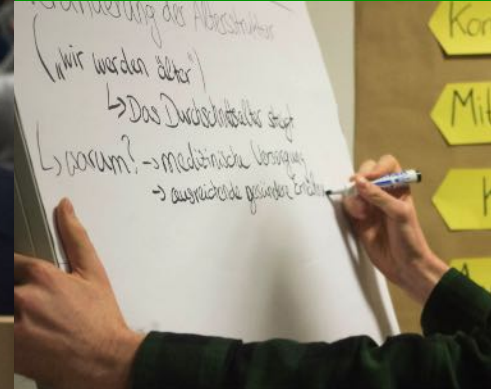 Veränderung der Altersstruktur
("wir werden älter")
↳ Das Durchschnittsalter steigt
↳ warum? → medizinische Versorgung
→ ausreichende gesündere Ernähr
Kor
Mit
K
A